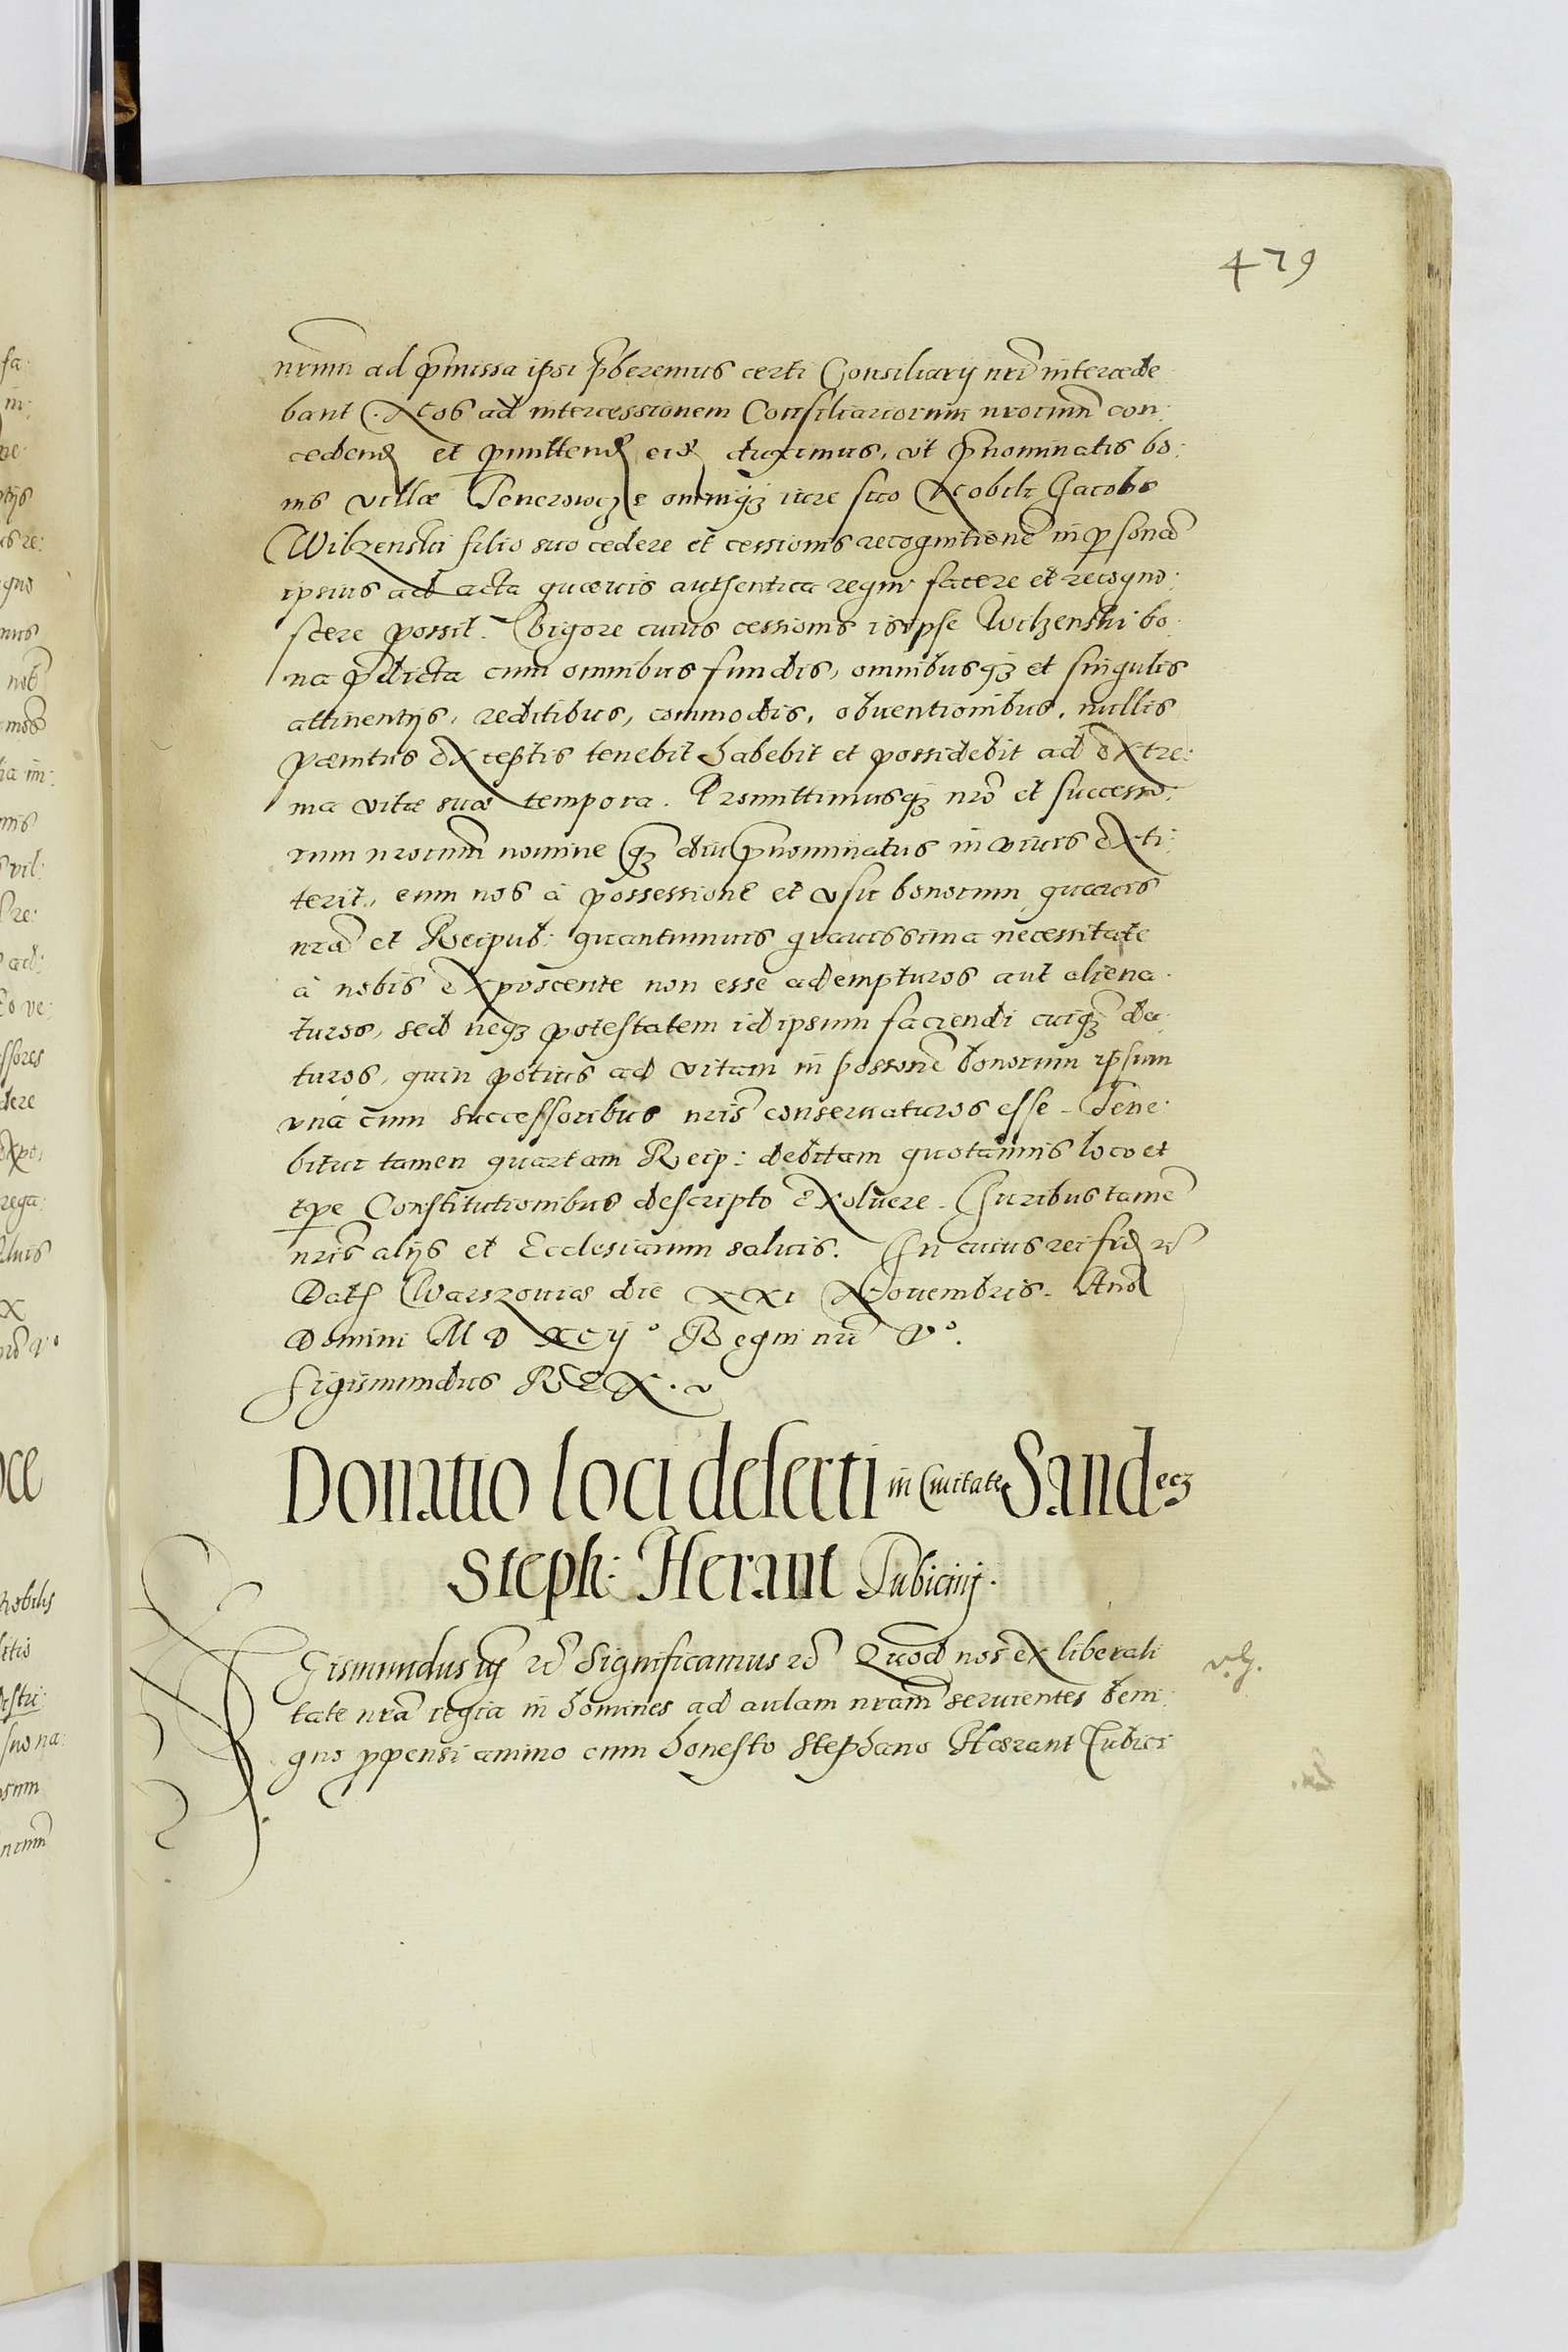 479
nrmn ad p̄missa ipsi p̄beremus certi Consiliarij nr̄i intercede
bant. Nos ad intercessionem Consiliariorum nrorum̄ con:
cedend et p̄mittend eid duximus, vt p̄nominatis bo:
nis villæ omniq3 iure suo Nobili Jacobo
Wilzenski filio suo cedere et cessionis recognitionē in p̄sonā
ipsius ad acta quævis authentica regni facere et recogno:
scere possit. Vigore cuius cessionis is ipse Wilzenski bo:
na p̄dicta cum omnibus fundis, omnibusq3 et singulis
attinentijs, reditibus, commodis, obuentionibus, nullis
pænitus exceptis tenebit habebit et possidebit ad extre:
ma vitæ suæ tempora. Promittimusq3 nrō et successo:
rum nrorum̄ nomine q3 diu p̄nominatus in viuis exti:
terit, eum nos à possessione et vsu bonorum quauis
nrā et Reipub: quantumuis grauissima necessitate
à nobis exposcente non esse adempturos aut aliena:
turos, sed neq3 potestatem id ipsum faciendi cuiq3 da:
turos, quin potius ad vitam in possione bonorum ipsum
vná cum successoribus nrīs conseruaturos esse. Tene:
bitur tamen quartam Reip: debitam quotannis loco et
tpe Constitutionibus descripto exoluere. Iuribus tamē
nrīs alijs et Ecclesiarum saluis. In cuius rei fid rc̄
Dat Warszouiæ die XXI Nouembris. Anō
Domini M D XCij° Regni nrī V°.
Sigismundus REX.
Donatio loci deserti in Ciuitate Sandec3
Steph: Herant Tubicinj.
Sigismundus iij rc̄ Significamus rc̄ Quod nos ex liberali
tate nrā regia in homines ad aulam nram̄ seruientes beni
gno p̄pensi animo cum honesto Stephano Hærant Tubici